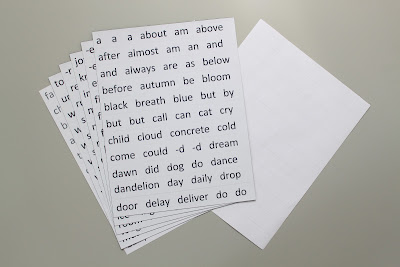 a a a about am above
after almost am an and
and always are as below
before autumn be bloom
black breath blue but by
but but call can cat cry
child cloud concrete cold
come could -d -d dream
dawn did dog do dance
dandelion day daily drop
door delay deliver do do